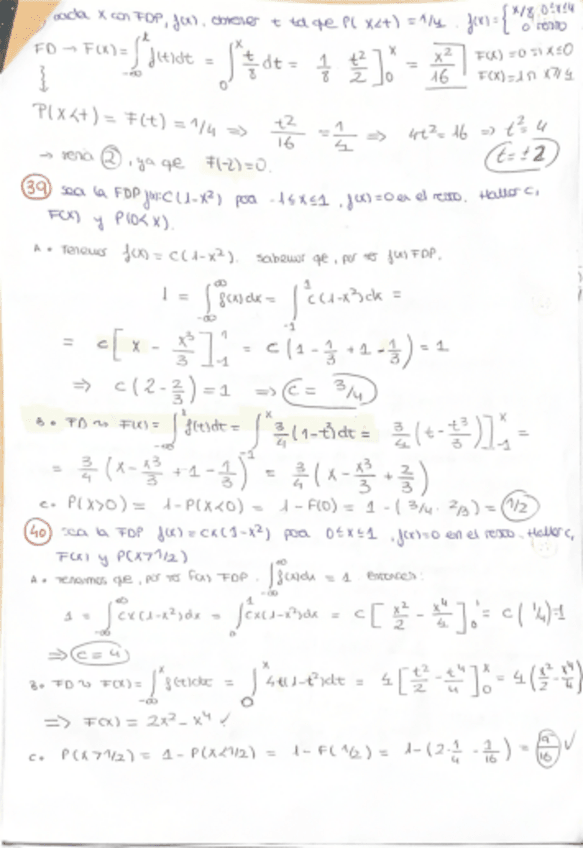 dada X con FDP, f(x), obtener t tal que P(X<t) = 1/4. f(x) = { x/8, 0≤x≤4
0 resto
FD → F(x) = ∫_{-∞}^{x} f(t)dt = ∫_0^x t/8 dt = 1/8 · t²/2 ]_0^x = x²/16 ] F(x) = 0 si x≤0
F(x) = 1 si x≥4
P(X<t) = F(t) = 1/4 => t²/16 = 1/4 => 4t² = 16 => t² = 4
t = ±2
→ sería 2, ya que F(-2) = 0.
39 sea la FDP f(x) = C(1-x²) para -1≤x≤1, f(x) = 0 en el resto. Hallar C,
F(x) y P(0<x).
A. Tenemos f(x) = C(1-x²). Sabemos qe, por ser f(x) FDP,
1 = ∫_{-∞}^{∞} f(x)dx = ∫_{-1}^{1} C(1-x²)dx =
= c[ x - x³/3 ]_{-1}^{1} = c(1 - 1/3 + 1 - 1/3) = 1
=> c(2 - 2/3) = 1 => C = 3/4
B. FD ~> F(x) = ∫_{-∞}^{x} f(t)dt = ∫_{-1}^{x} 3/4 (1-t²)dt = 3/4 (t - t³/3) ]_{-1}^{x} =
= 3/4 (x - x³/3 + 1 - 1/3) = 3/4 (x - x³/3 + 2/3)
C. P(X>0) = 1-P(X<0) = 1-F(0) = 1 - (3/4 · 2/3) = 1/2
40 sea la FDP f(x) = cx(1-x²) para 0≤x≤1, f(x) = 0 en el resto. Hallar C,
F(x) y P(X>1/2)
A. Tenemos que, por ser f(x) FDP. ∫_{-∞}^{∞} f(x)dx = 1. Entonces:
1 = ∫_{-∞}^{∞} cx(1-x²)dx = ∫_0^1 cx(1-x²)dx = c[ x²/2 - x⁴/4 ]_0^1 = c(1/4) = 1
=> c = 4
B. FD ~> F(x) = ∫_{-∞}^{x} f(t)dt = ∫_0^x 4t(1-t²)dt = 4[ t²/2 - t⁴/4 ]_0^x = 4(x²/2 - x⁴/4)
=> F(x) = 2x² - x⁴ ✓
C. P(X>1/2) = 1 - P(X<1/2) = 1 - F(1/2) = 1-(2·1/4 - 1/16) = 9/16 ✓